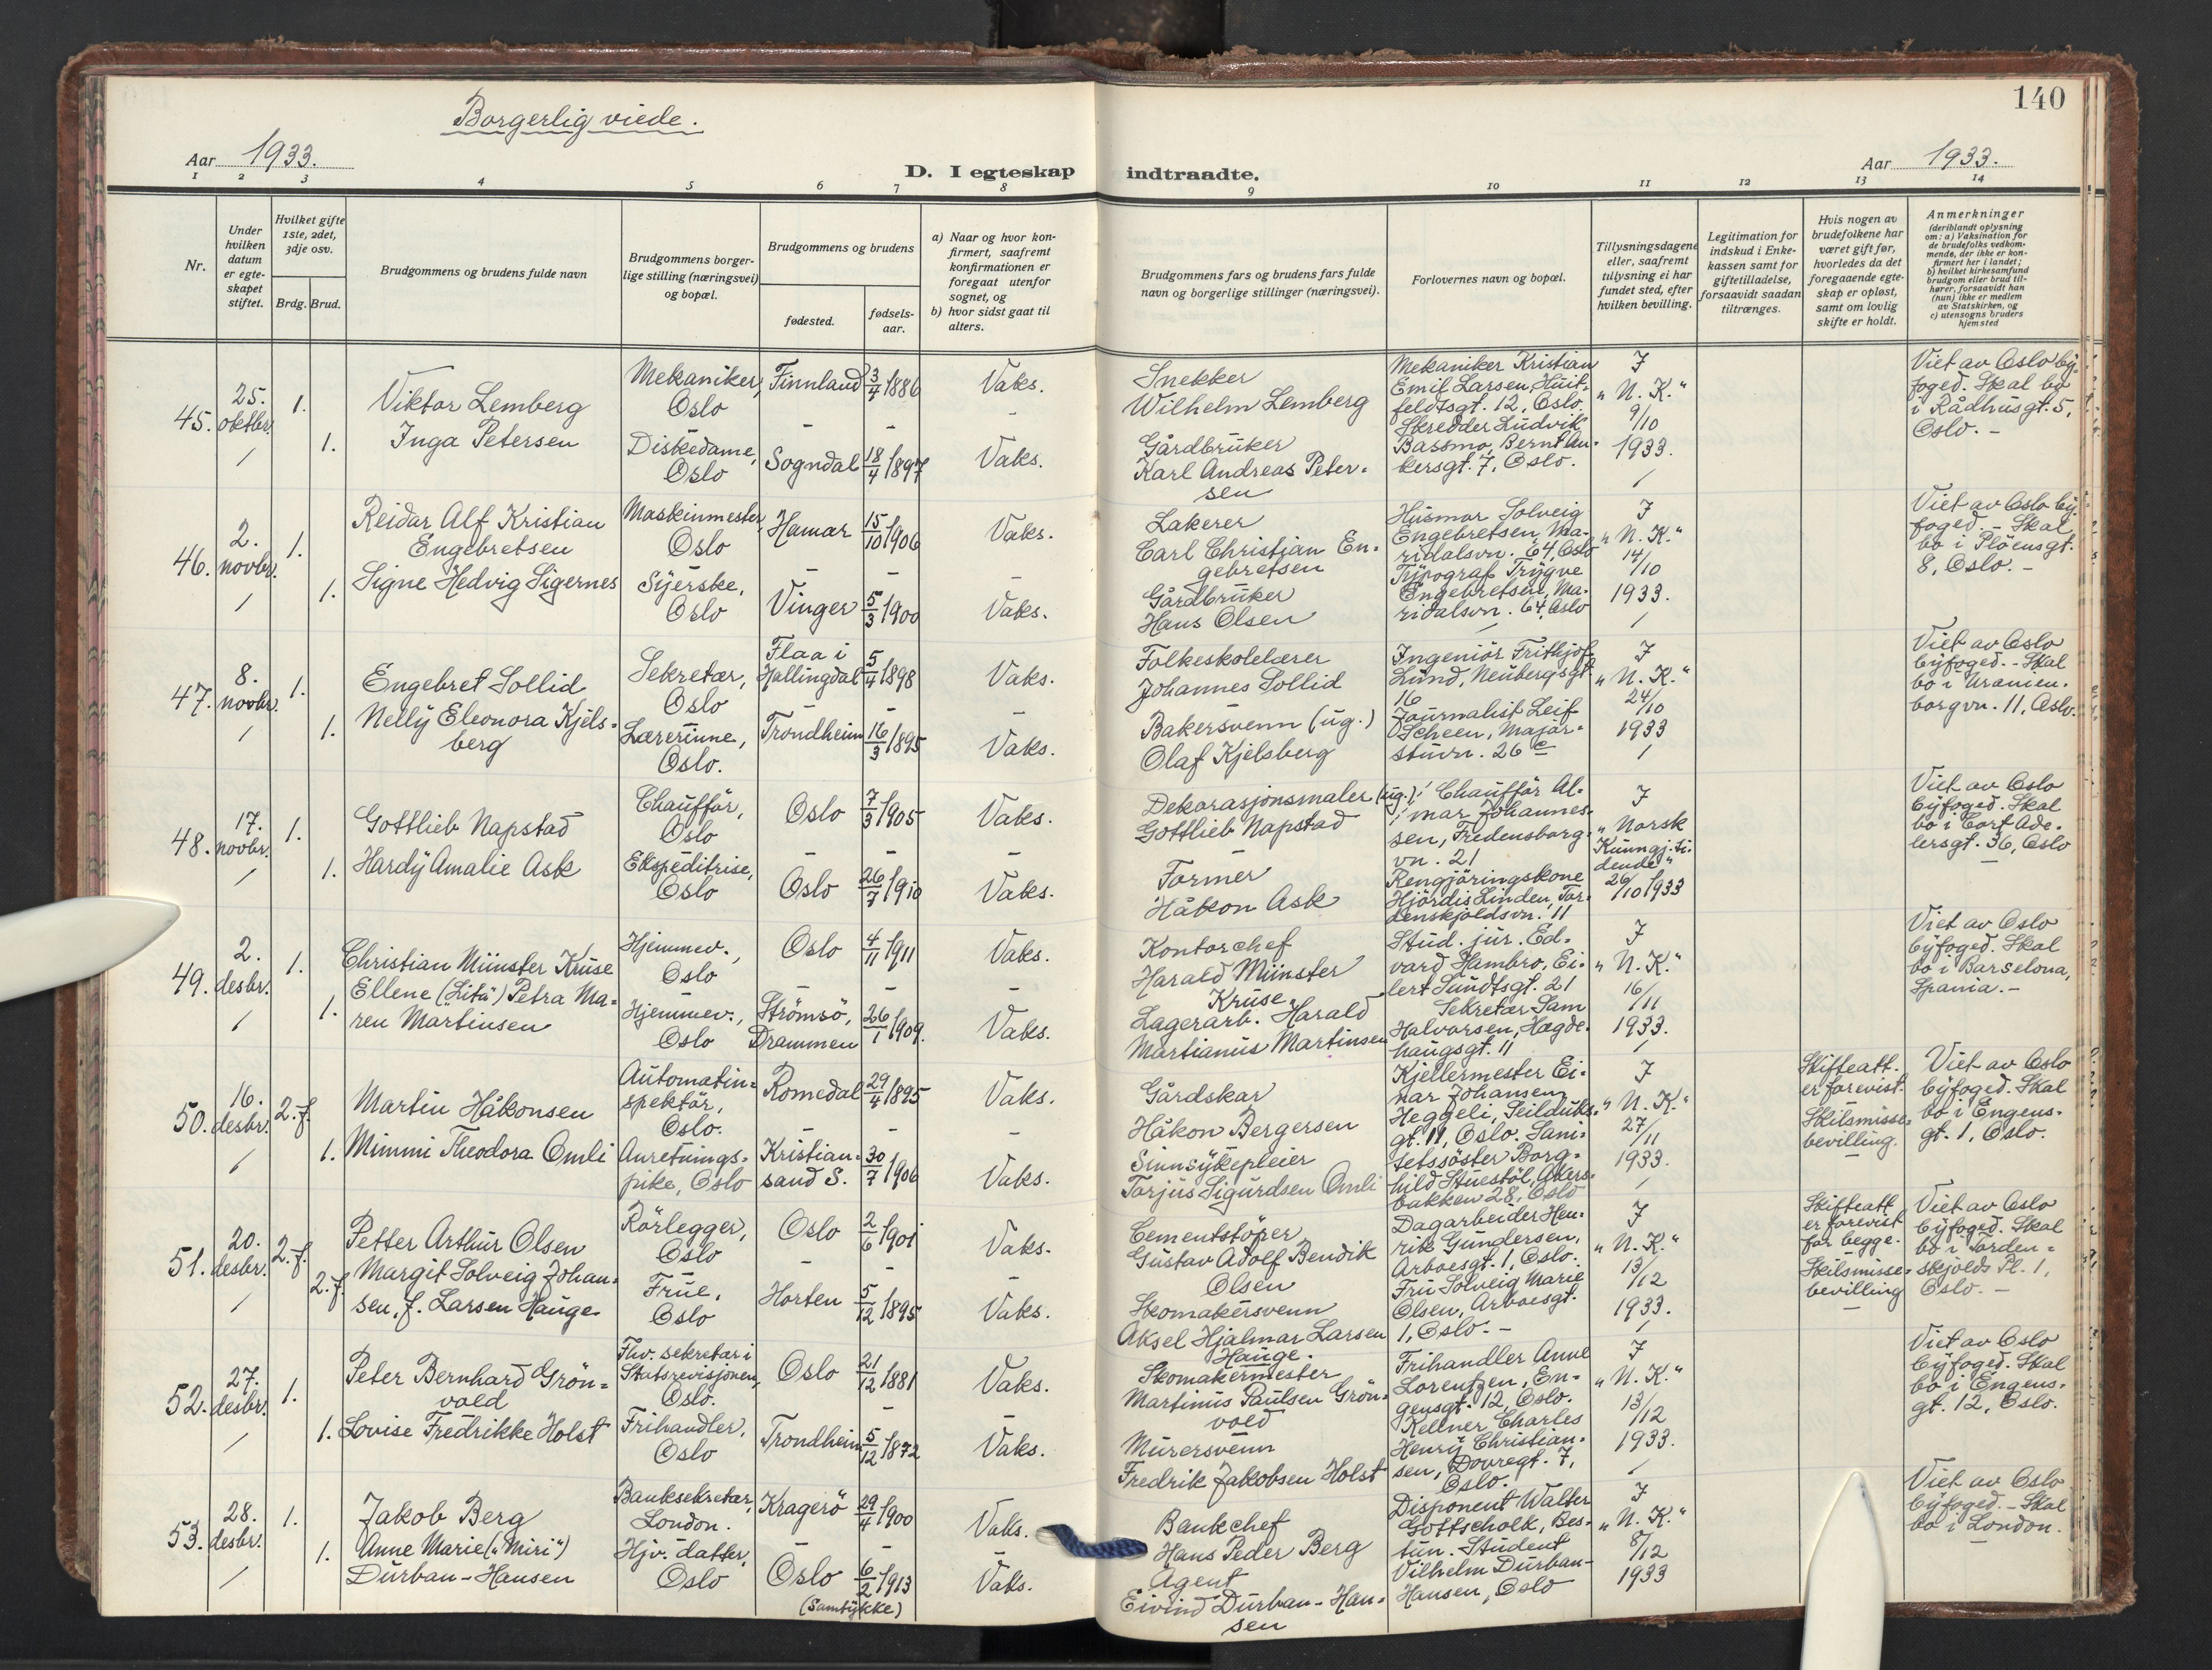 Borgerlig viede.
140
Aar 1933.
D. I egteskap indtraadte.
Aar 1933.
1 2 3 4 5 6 7 8 9 10 11 12 13 14
Nr.
Under hvilken datum er egte-skapet stiftet.
Hvilket gifte 1ste, 2det, 3dje osv.
Brdg. Brud.
Brudgommens og brudens fulde navn
Brudgommens borger-lige stilling (næringsvei) og bopæl.
Brudgommens og brudens
fødested.
fødsels-aar.
a) Naar og hvor kon-firmert, saafremt konfirmationen er foregaat utenfor sognet, og
b) hvor sidst gaat til alters.
Brudgommens fars og brudens fars fulde navn og borgerlige stillinger (næringsvei).
Forlovernes navn og bopæl.
Tillysningsdagene eller, saafremt tillysning ei har fundet sted, efter hvilken bevilling.
Legitimation for indskud i Enke-kassen samt for giftetilladelse, forsaavidt saadan tiltrænges.
Hvis nogen av brudefolkene har været gift før, hvorledes da det foregaaende egte-skap er opløst, samt om lovlig skifte er holdt.
Anmerkninger
(deriblandt oplysning om: a) Vaksination for de brudefolks vedkom-mende, der ikke er kon-firmert her i landet;
b) hvilket kirkesamfund brudgom eller brud til-hører, forsaavidt han (hun) ikke er medlem av Statskirken, og
c) utensogns bruders hjemsted
45. 25. oktbr. 1.
Viktor Lemberg
Mekaniker, Oslo
Finnland 3/4 1886
Vaks.
Snekker
Wilhelm Lemberg
1. Inga Petersen
Diskedame, Oslo
Sogndal 18/4 1897
Vaks.
Gårdbruker
Karl Andreas Peter-
sen
Mekaniker Kristian
Emil Larsen, Huit-
feldtsgt. 12, Oslo.
Skredder Ludvik
Bassmo, Bernt An-
kersgt. 7, Oslo.
I
„N. K."
9/10
1933.
Viet av Oslo by-
foged. Skal bo
i Rådhusgt. 5,
Oslo. -
46. 2. novbr. 1.
Reidar Alf Kristian
Engebretsen
Maskinmester, Oslo
Hamar 15/10 1906
Vaks.
Lakerer
Carl Christian En-
gebretsen
1. Signe Hedvig Sigernes
Syerske, Oslo
Vinger 5/3 1900
Vaks.
Gårdbruker
Hans Olsen
Husmor Solveig
Engebretsen, Ma-
ridalsvn. 64, Oslo
Typograf Trygve
Engebretsen, Ma-
ridalsvn. 64, Oslo
I
„N. K."
14/10
1933.
Viet av Oslo by-
foged. - Skal
bo i Plöensgt.
8, Oslo. -
47. 8. novbr. 1.
Engebret Sollid
Sekretær, Oslo
Flaa i Hallingdal 5/4 1898
Vaks.
Folkeskolelærer
Johannes Sollid
1. Nelly Eleonora Kjels-
berg
Lærerinne, Oslo.
Trondheim 16/3 1895
Vaks.
Bakersvenn (ug.)
Olaf Kjelsberg
Ingeniör Frithjof
Lund, Neubergsgt
16
Journalist Leif
Scheen, Major-
stuvn. 26 c
I
„N. K."
24/10
1933
Viet av Oslo
byfoged. - Skal
bo i Uranien-
borgvn. 11, Oslo.
48. 17. novbr. 1.
Gottlieb Napstad
Chaufför, Oslo
Oslo 7/3 1905
Vaks.
Dekorasjonsmaler (ug.)
Gottlieb Napstad
1. Hardy Amalie Ask
Ekspeditrise, Oslo
Oslo 26/7 1910
Vaks.
Former
Håkon Ask
Chaufför Al-
mar Johannes-
sen, Fredensborg-
vn. 21
Rengjöringskone
Hjördis Linden, Tor-
denskjoldsvn. 11
I
„Norsk
Kunngj. ti-
dende"
26/10 1933
Viet av Oslo
byfoged. Skal
bo i Cort Ade-
lersgt. 36, Oslo
49. 2. desbr. 1.
Christian Münster Kruse
Hjemmev., Oslo
Oslo 4/11 1911
Vaks.
Kontorchef
Harald Münster
Kruse.
1. Ellene („Lita") Petra Ma-
ren Martinsen
Hjemmev., Oslo
Strömsö, Drammen 26/1 1909.
Vaks.
Lagerarb. Harald
Martianus Martinsen
Stud. jur. Ed-
vard Hambro, Ei-
lert Sundtsgt. 21
Sekretær Sam
Halvorsen, Hægde-
haugsgt. 11
I
„N. K."
16/11
1933.
Viet av Oslo
byfoged. Skal
bo i Barselona,
Spania. -
50. 16. desbr. 2. f.
Martin Håkonsen
Automatin-
spektör,
Oslo.
Romedal 29/4 1895
Vaks.
Gårdskar
Håkon Bergersen
1. Mimmi Theodora Omli
Anretnings-
pike, Oslo
Kristian-
sand S. 30/7 1906
Vaks.
Sinnsykepleier
Torjus Sigurdsen Omli
Kjellermester Ei-
nar Johansen,
Heggeli, Seilduks-
gt. 11, Oslo. Sani-
tetssöster Borg-
hild Stuestöl, Akers-
bakken 28, Oslo
I
„N. K."
27/11
1933.
Skifteatt.
er forevist.
Skilsmisse-
bevilling.
Viet av Oslo
byfoged. Skal
bo i Engens-
gt. 1, Oslo.
51. 20. desbr. 2. f.
Petter Arthur Olsen
Rörlegger, Oslo
Oslo 2/6 1901
Vaks.
Cementstöper
Gustav Adolf Bendik
Olsen
2. f. Margit Solveig Johan-
sen, f. Larsen Hauge
Frue, Oslo
Horten 5/12 1895
Vaks.
Skomakersvenn
Aksel Hjalmar Larsen
Hauge.
Dagarbeider Hen-
rik Gundersen,
Arboesgt. 1, Oslo.
Fru Solveig Marie
Olsen, Arboesgt.
1, Oslo. -
I
„N. K."
13/12
1933.
Skifteatt
er forevist
for begge.
Skilsmisse-
bevilling
Viet av Oslo
byfoged. Skal
bo i Torden-
skjolds Pl. 1,
Oslo. -
52. 27. desbr. 1.
Peter Bernhard Grön-
vold
Fhv. sekretær i
Statsrevisjonen,
Oslo.
Oslo 21/12 1881
Vaks.
Skomakermester
Martinus Paulsen Grön-
vold
1. Lovise Fredrikke Holst
Frihandler, Oslo
Trondheim 5/12 1872
Vaks.
Murersvenn
Fredrik Jakobsen Holst
Frihandler Anne
Lorentzen, En-
gensgt. 12, Oslo.
Kellner Charles
Henry Christian-
sen, Dovregt. 7,
Oslo.
I
„N. K."
13/12
1933.
Viet av Oslo
byfoged. Skal
bo i Engens-
gt. 12, Oslo.
53. 28. desbr. 1.
Jakob Berg
Banksekretær, London.
Kragerö 29/4 1900
Vaks.
Bankchef
Hans Peder Berg
1. Anne Marie („Miri")
Durban-Hansen
Hjv. datter, Oslo
Oslo 6/2 1913
(Samtykke)
Vaks.
Agent
Eivind Durban-Han-
sen
Disponent Walter
Gottscholk, Bes-
tun. Student
Vilhelm Durban-
Hansen, Oslo
I
„N. K."
8/12
1933
Viet av Oslo
byfoged. - Skal
bo i London.